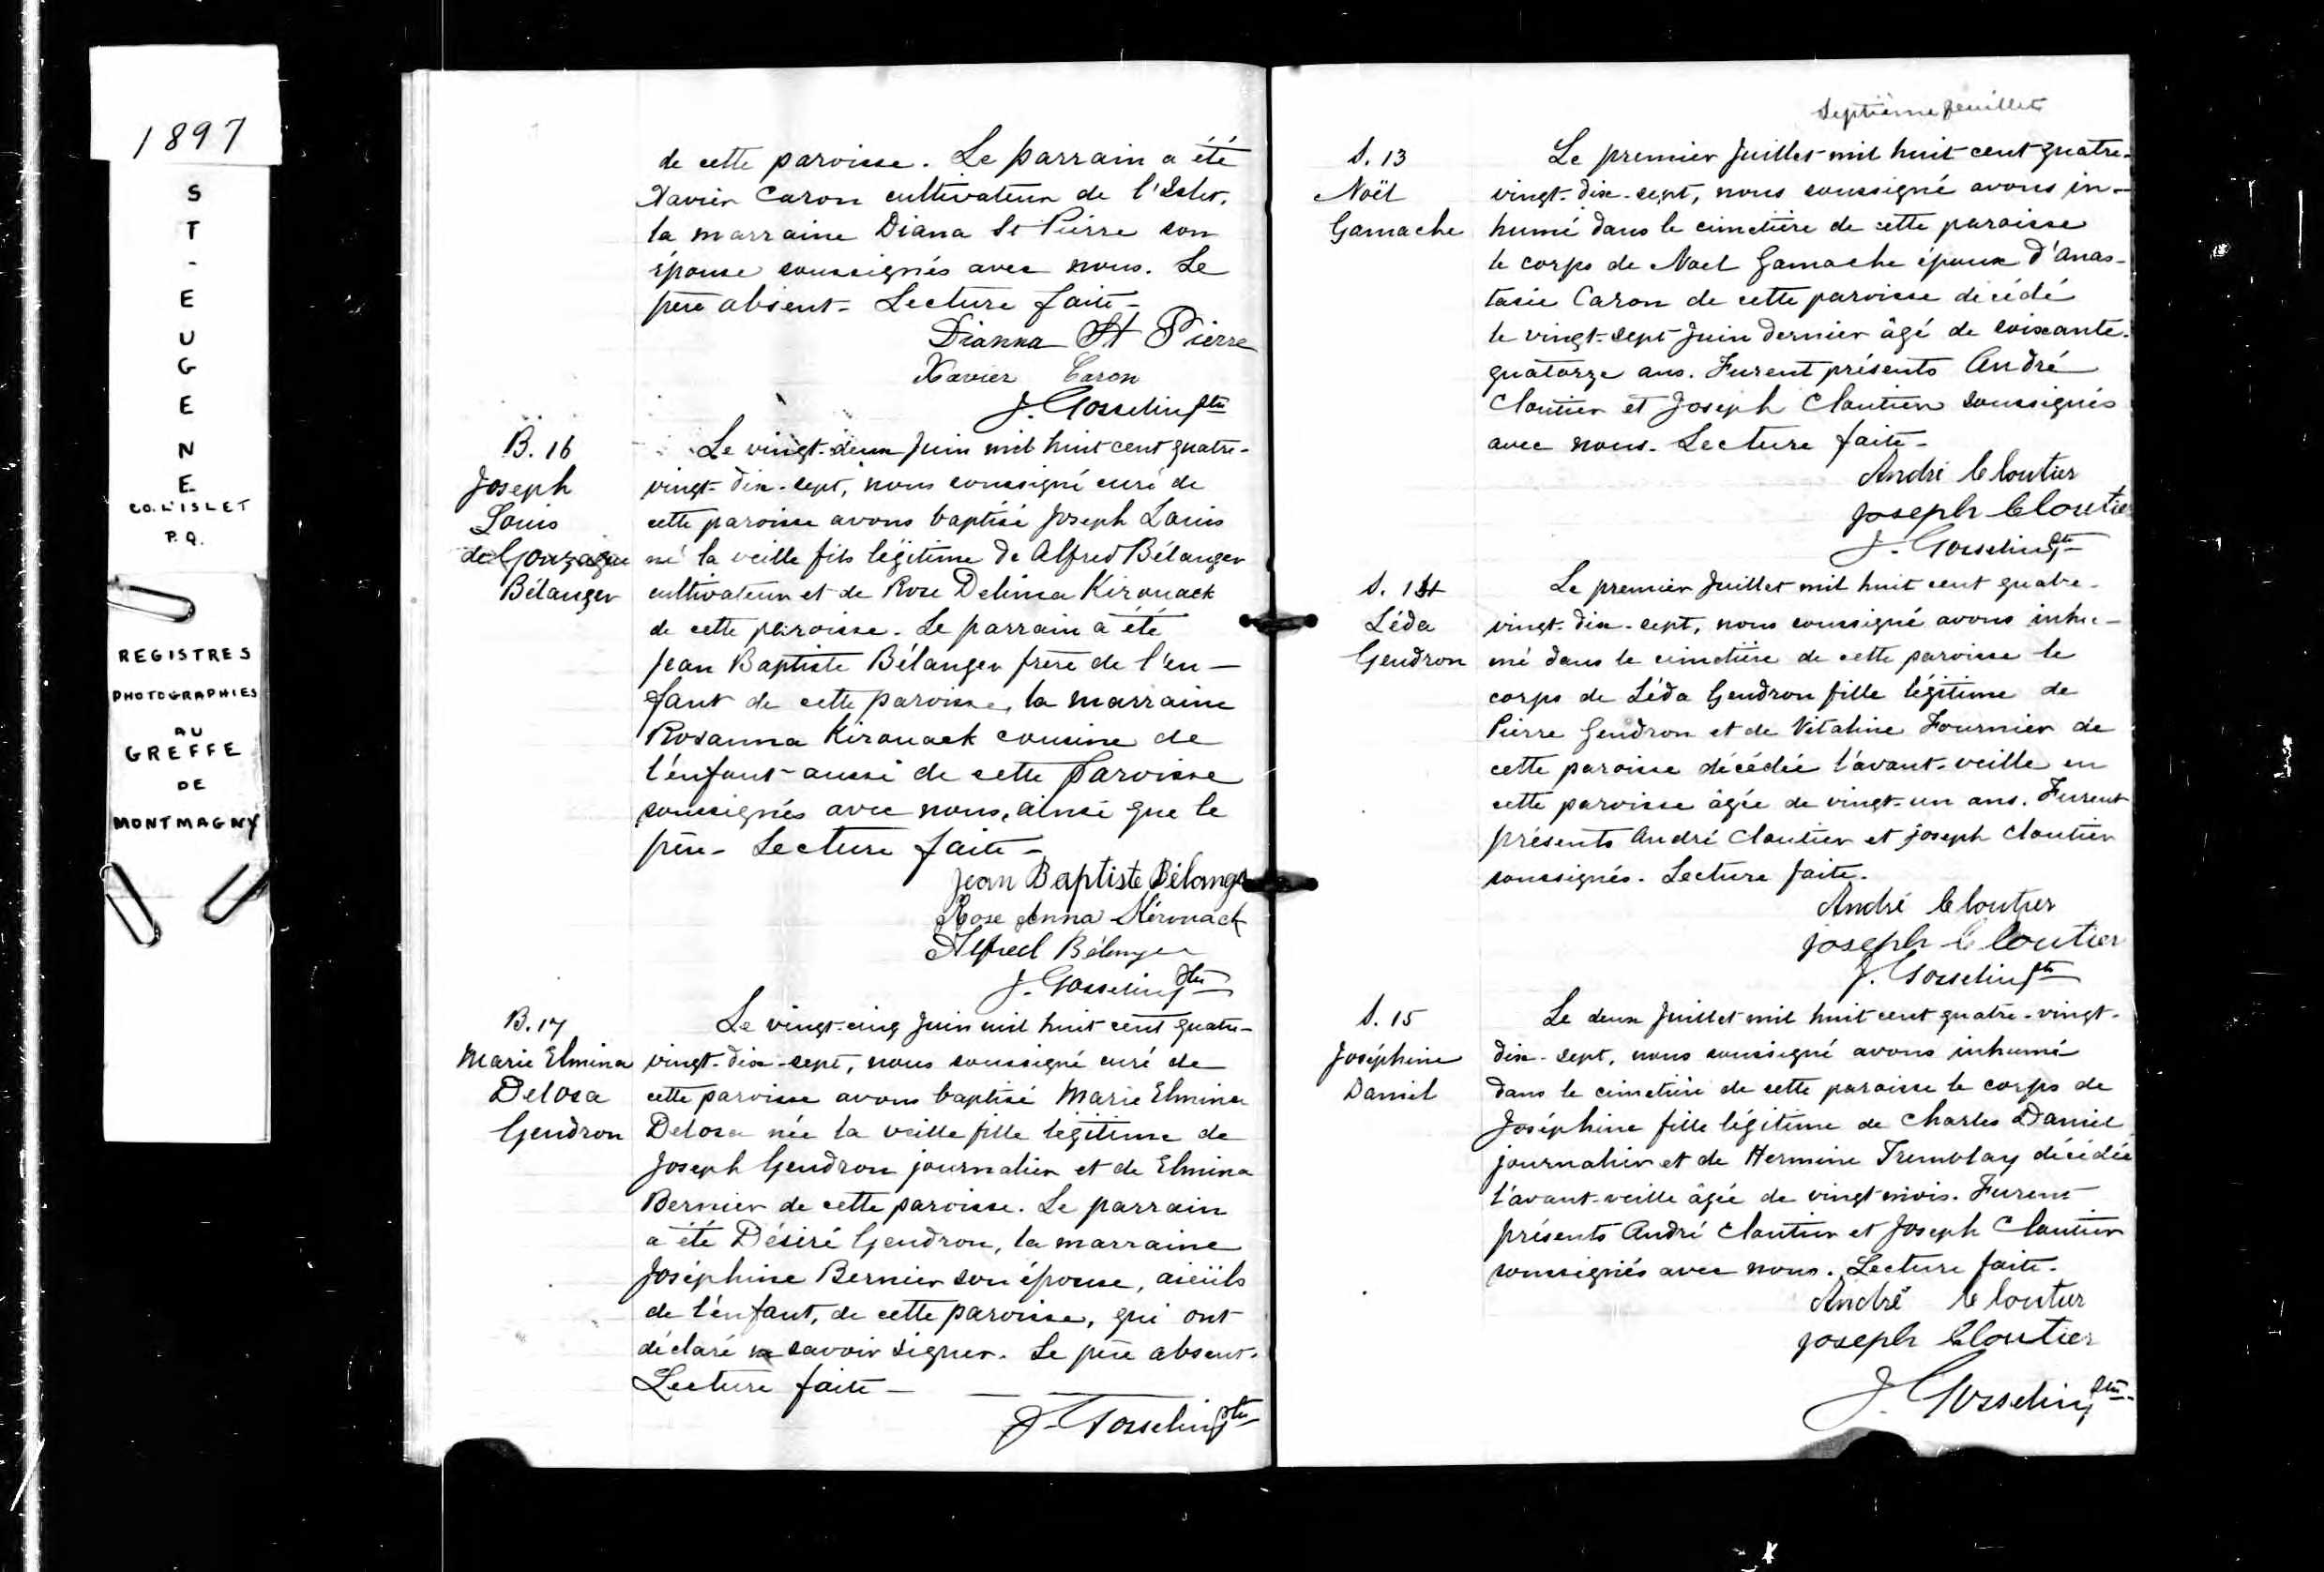 1897
S
T
-
E
U
G
E
N
E
CO. L'ISLET
P.Q.
REGISTRES
PHOTOGRAPHIES
AU
GREFFE
DE
MONTMAGNY
de cette paroisse. Le parrain a été
Xavier Caron cultivateur de l'Islet,
la marraine Diana St Pierre son
épouse soussignés avec nous. Le
père absent - Lecture faite -
Dianna St Pierre
Xavier Caron
J. Gosselin Ptre
B. 16
Joseph
Louis
de Gonzague
Bélanger
Le vingt-deux Juin mil huit cent quatre-
vingt-dix-sept, nous soussigné curé de
cette paroisse avons baptisé Joseph Louis
né la veille fils légitime de Alfred Bélanger
cultivateur et de Rose Delima Kirouack
de cette paroisse. Le parrain a été
Jean Baptiste Bélanger frère de l'en-
fant de cette paroisse, la marraine
Rosanna Kirouack cousine de
l'enfant aussi de cette Paroisse
soussignés avec nous, ainsi que le
père - Lecture faite -
Jean Baptiste Bélanger
Rose Anna Kérouack
Alfred Bélanger
J. Gosselin Ptre
B. 17
Marie Elmina
Delosa
Gendron
Le vingt-cinq Juin mil huit cent quatre-
vingt-dix-sept, nous soussigné curé de
cette paroisse avons baptisé Marie Elmina
Delosa née la veille fille légitime de
Joseph Gendron journalier et de Elmina
Bernier de cette paroisse. Le parrain
a été Désiré Gendron, la marraine
Joséphine Bernier son épouse, aieüls
de l'enfant, de cette paroisse, qui ont
déclaré ne savoir signer. Le père absent.
Lecture faite -
J. Gosselin Ptre
Septième feuillet
S. 13
Noël
Gamache
Le premier Juillet mil huit cent quatre-
vingt-dix-sept, nous soussigné avons in-
humé dans le cimetière de cette paroisse
le corps de Noel Gamache époux d'Anas-
tasie Caron de cette paroisse décédé
le vingt-sept Juin dernier âgé de soixante-
quatorze ans. Furent présents André
Cloutier et Joseph Cloutier soussignés
avec nous. Lecture faite -
André Cloutier
Joseph Cloutier
J. Gosselin Ptre
S. 14
Léda
Gendron
Le premier Juillet mil huit cent quatre-
vingt-dix-sept, nous soussigné avons inhu-
mé dans le cimetière de cette paroisse le
corps de Léda Gendron fille légitime de
Pierre Gendron et de Vitaline Fournier de
cette paroisse décédée l'avant-veille en
cette paroisse âgée de vingt-un ans. Furent
présents André Cloutier et Joseph Cloutier
soussignés. Lecture faite.
André Cloutier
Joseph Cloutier
J. Gosselin Ptre
S. 15
Joséphine
Daniel
Le deux Juillet mil huit cent quatre-vingt-
dix-sept, nous soussigné avons inhumé
dans le cimetière de cette paroisse le corps de
Joséphine fille légitime de Charles Daniel
journalier et de Hermine Tremblay décédée
l'avant-veille âgée de vingt mois. Furent
présents André Cloutier et Joseph Cloutier
soussignés avec nous. Lecture faite.
André Cloutier
Joseph Cloutier
J. Gosselin Ptre